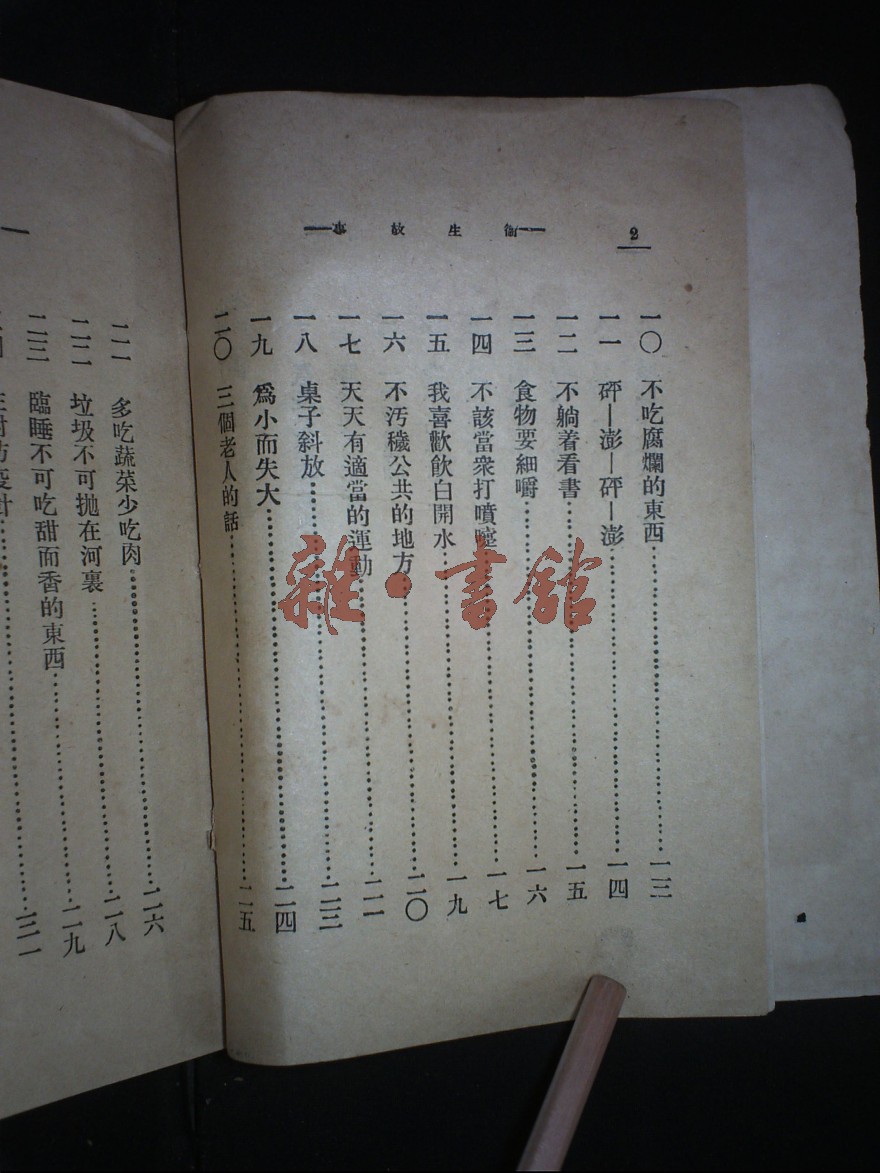 2
衞生故事
一〇 不吃腐爛的東西……一三
一一 砰—澎—砰—澎……一四
一二 不躺着看書……一五
一三 食物要細嚼……一六
一四 不該當衆打噴嚏……一七
一五 我喜歡飲白開水……一九
一六 不汚穢公共的地方……二〇
一七 天天有適當的運動……二一
一八 桌子斜放……二三
一九 爲小而失大……二四
二〇 三個老人的話……二五
二一 多吃蔬菜少吃肉……二六
二二 垃圾不可抛在河裏……二八
二三 臨睡不可吃甜而香的東西……二九
三一
雜·書館